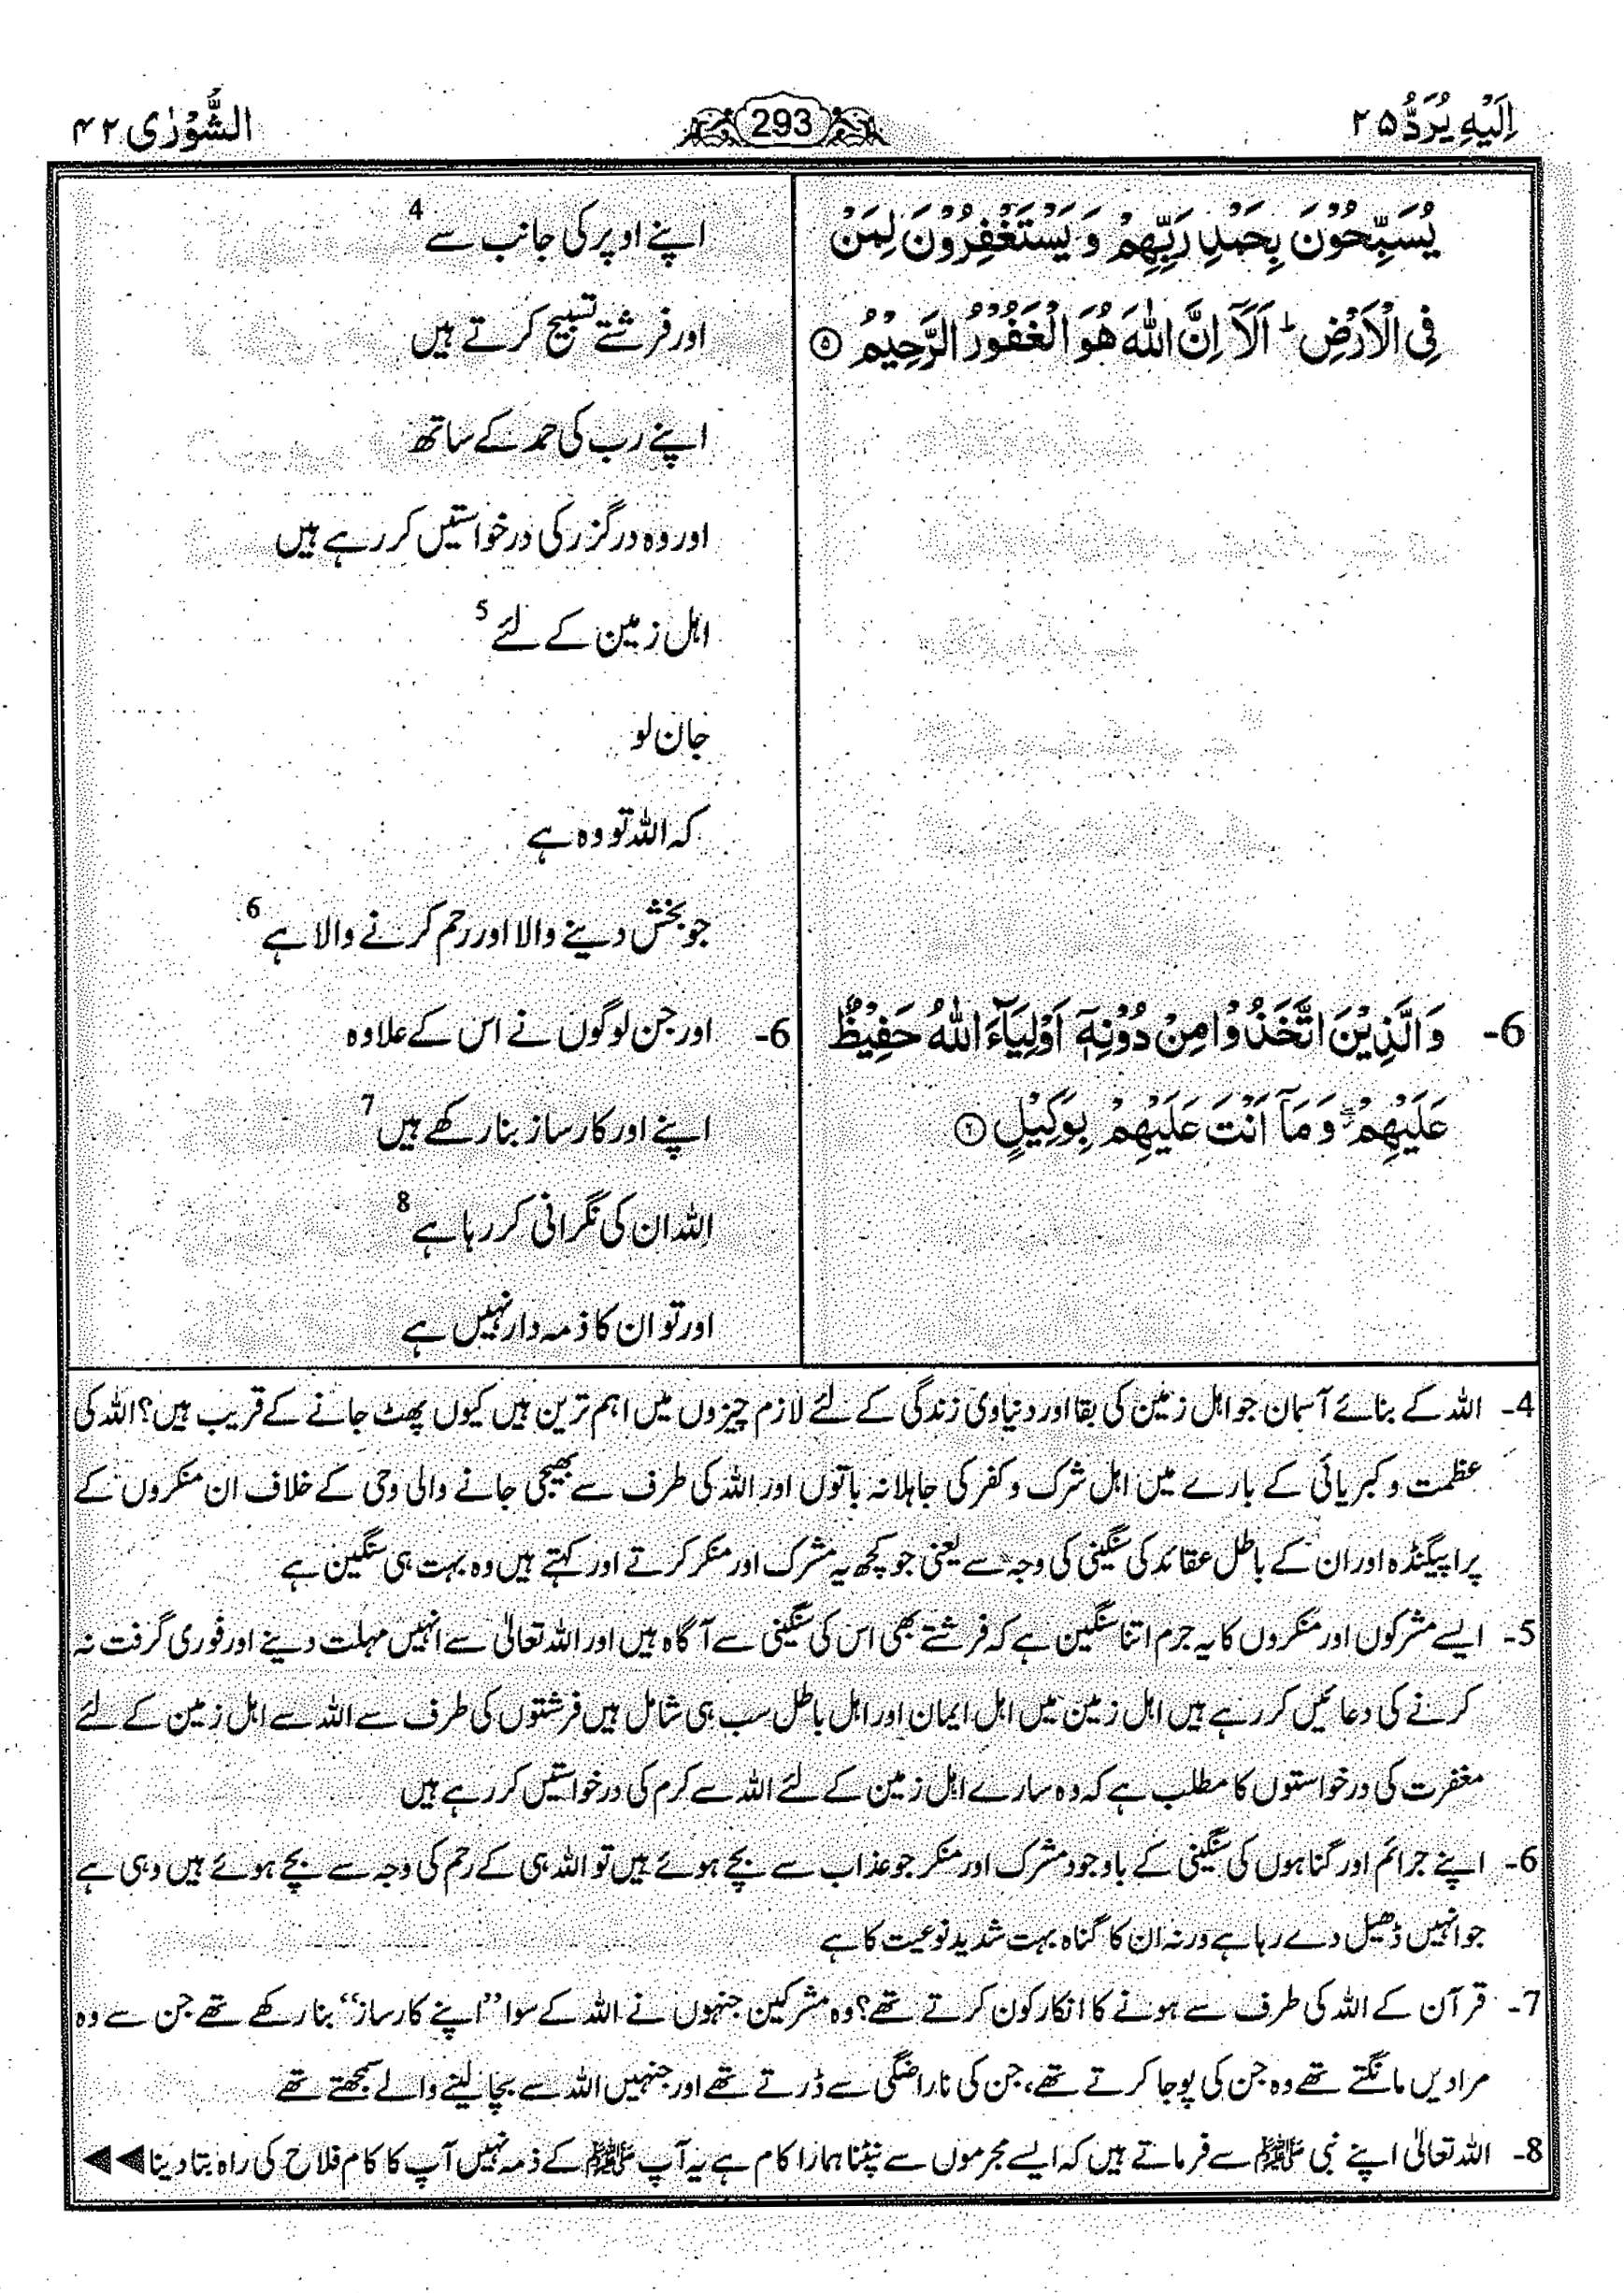 اِلَیْهِ یُرَدُّ ۲۵
293
الشُّوْرٰی ۴۲
یُسَبِّحُوْنَ بِحَمْدِ رَبِّهِمْ وَ یَسْتَغْفِرُوْنَ لِمَنْ
فِی الْاَرْضِ ؕ اَلَاۤ اِنَّ اللّٰهَ هُوَ الْغَفُوْرُ الرَّحِیْمُ ۵
6- وَ الَّذِیْنَ اتَّخَذُوْا مِنْ دُوْنِهٖۤ اَوْلِیَآءَ اللّٰهُ حَفِیْظٌ
عَلَیْهِمْ ۖ وَ مَاۤ اَنْتَ عَلَیْهِمْ بِوَكِیْلٍ ۶
اپنے اوپر کی جانب سے 4
اور فرشتے تسبیح کرتے ہیں
اپنے رب کی حمد کے ساتھ
اور وہ درگزر کی درخواستیں کر رہے ہیں
اہل زمین کے لئے 5
جان لو
کہ اللہ تو وہ ہے
جو بخش دینے والا اور رحم کرنے والا ہے 6
6- اور جن لوگوں نے اس کے علاوہ
اپنے اور کارساز بنا رکھے ہیں 7
اللہ ان کی نگرانی کر رہا ہے 8
اور تو ان کا ذمہ دار نہیں ہے
4- اللہ کے بنائے آسمان جو اہل زمین کی بقا اور دنیاوی زندگی کے لئے لازم چیزوں میں اہم ترین ہیں کیوں پھٹ جانے کے قریب ہیں؟ اللہ کی
عظمت و کبریائی کے بارے میں اہل شرک و کفر کی جاہلانہ باتوں اور اللہ کی طرف سے بھیجی جانے والی وحی کے خلاف ان منکروں کے
پراپیگنڈہ اور ان کے باطل عقائد کی سنگینی کی وجہ سے یعنی جو کچھ یہ مشرک اور منکر کرتے اور کہتے ہیں وہ بہت ہی سنگین ہے
5- ایسے مشرکوں اور منکروں کا یہ جرم اتنا سنگین ہے کہ فرشتے بھی اس کی سنگینی سے آگاہ ہیں اور اللہ تعالٰی سے انہیں مہلت دینے اور فوری گرفت نہ
کرنے کی دعائیں کر رہے ہیں اہل زمین میں اہل ایمان اور اہل باطل سب ہی شامل ہیں فرشتوں کی طرف سے اللہ سے اہل زمین کے لئے
مغفرت کی درخواستوں کا مطلب ہے کہ وہ سارے اہل زمین کے لئے اللہ سے کرم کی درخواستیں کر رہے ہیں
6- اپنے جرائم اور گناہوں کی سنگینی کے باوجود مشرک اور منکر جو عذاب سے بچے ہوئے ہیں تو اللہ ہی کے رحم کی وجہ سے بچے ہوئے ہیں وہی ہے
جو انہیں ڈھیل دے رہا ہے ورنہ ان کا گناہ بہت شدید نوعیت کا ہے
7- قرآن کے اللہ کی طرف سے ہونے کا انکار کون کرتے تھے؟ وہ مشرکین جنہوں نے اللہ کے سوا ”اپنے کارساز“ بنا رکھے تھے جن سے وہ
مرادیں مانگتے تھے وہ جن کی پوجا کرتے تھے، جن کی ناراضگی سے ڈرتے تھے اور جنہیں اللہ سے بچا لینے والے سمجھتے تھے
8- اللہ تعالٰی اپنے نبی ﷺ سے فرماتے ہیں کہ ایسے مجرموں سے نپٹنا ہمارا کام ہے یہ آپ ﷺ کے ذمہ نہیں آپ کا کام فلاح کی راہ بتا دینا ◀◀